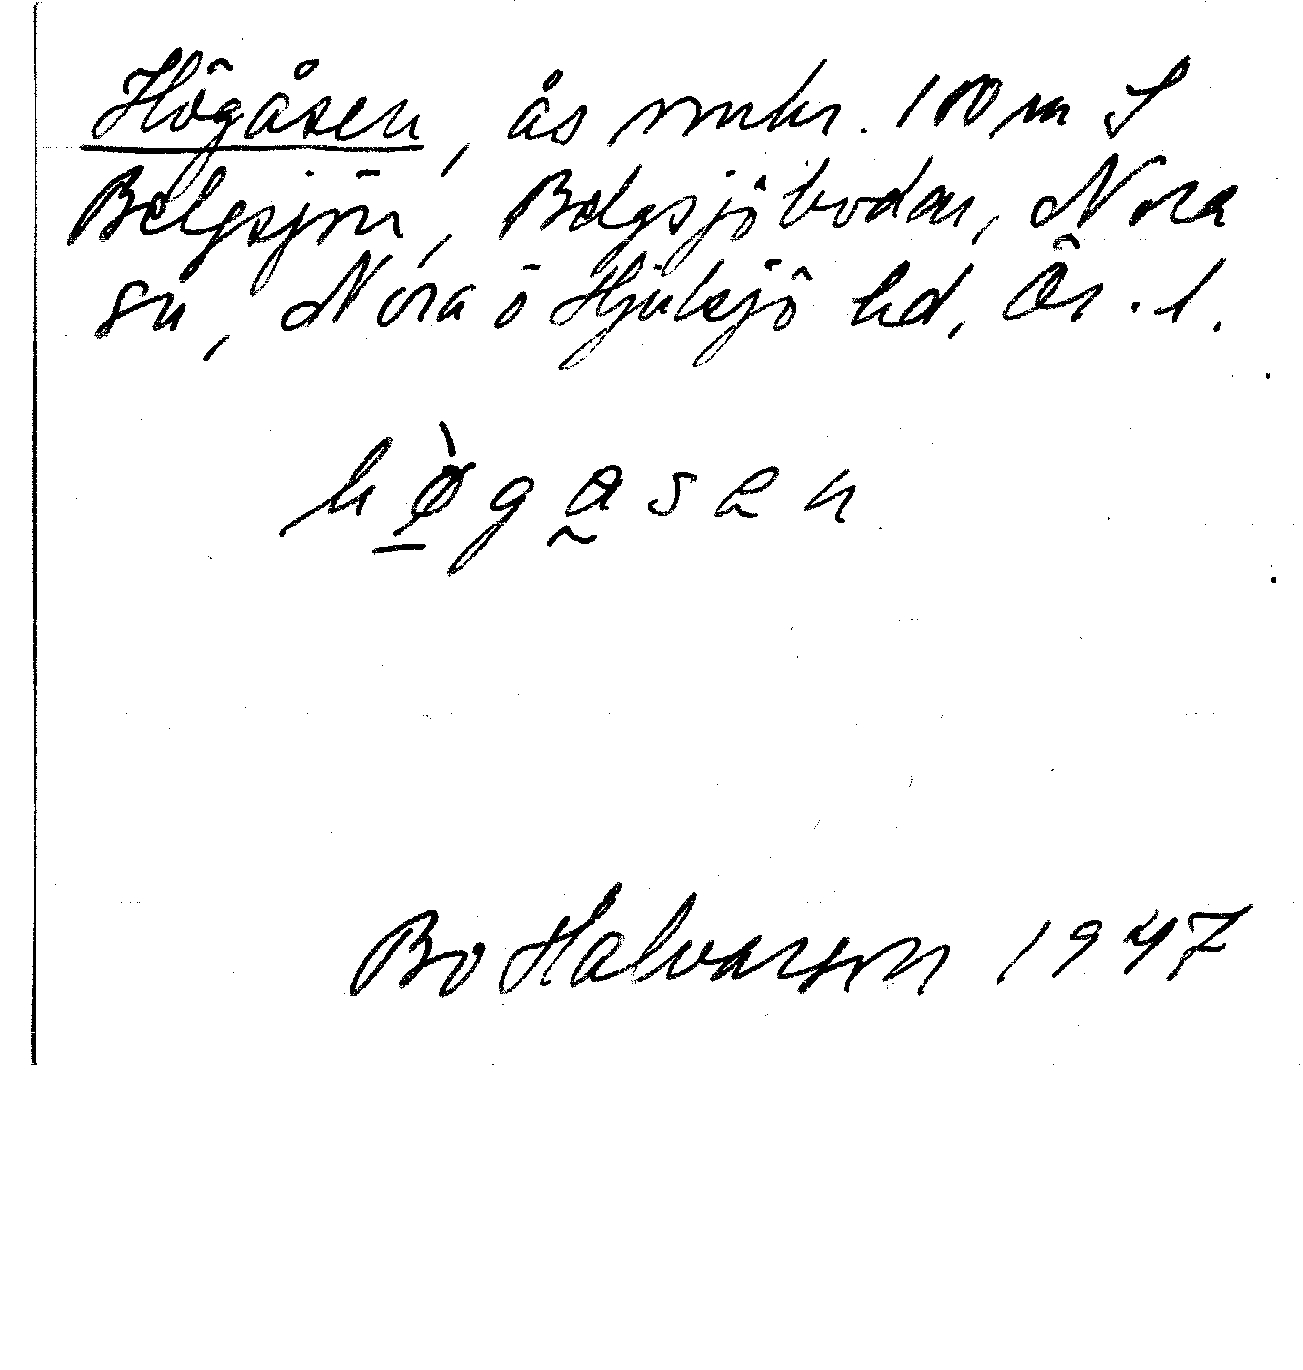 Högåsen, ås omkr. 100 m S
Belgsjön, Belgsjöbodar, Nora
sn, Nora o Hjulsjö hd, Ör. l.
hø̀gasen
Bo Halvarson 1947